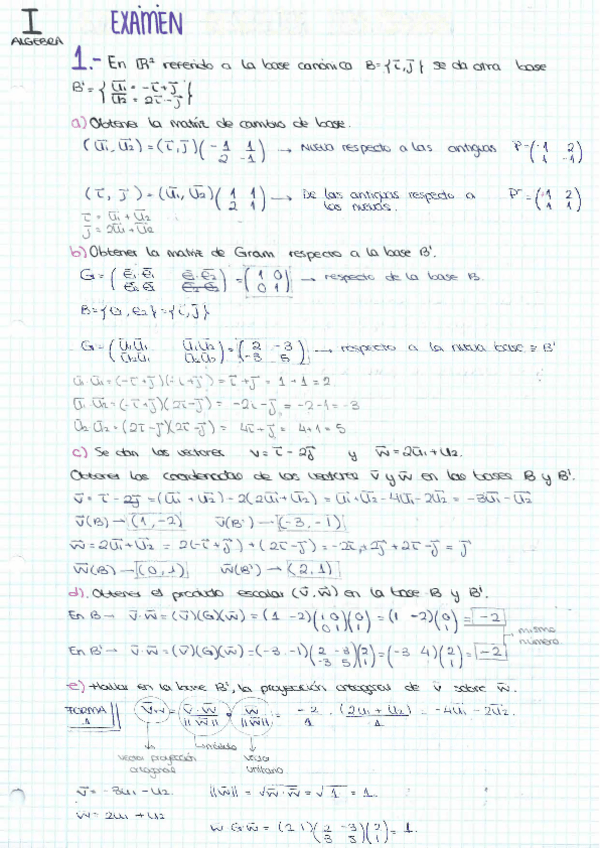 I EXAMEN
ALGEBRA
1.- En ℝ² referido a la base canónica B={ī,j̄} se da otra base
B'={ū1 = -ī+j̄
ū2 = 2ī-j̄}
a) Obtener la matriz de cambio de base.
(ū1,ū2)=(ī,j̄)(-1 1
2 -1) → Nuevo respecto a las antiguas P=(-1 2
1 -1)
(ī,j̄)=(ū1,ū2)(1 1
2 1) → De las antiguas respecto a las nuevas. P'=(1 2
1 1)
ī = ū1+ū2
j̄ = 2ū1+ū2
b) Obtener la matriz de Gram respecto a la base B'.
G=(ē1·ē1 ē1·ē2
ē2·ē1 ē2·ē2)=(1 0
0 1) → respecto de la base B.
B={e1,e2}={ī,j̄}
G=(ū1ū1 ū1ū2
ū2ū1 ū2ū2)=(2 -3
-3 5) → respecto a la nueva base = B'
ū1·ū1=(-ī+j̄)(-ī+j̄)=ī+j̄=1+1=2
ū1·ū2=(-ī+j̄)(2ī-j̄)= -2ī-j̄=-2-1=-3
ū2·ū2=(2ī-j̄)(2ī-j̄)= 4ī+j̄=4+1=5
c) Se dan los vectores v=ī-2j̄ y w̄=2ū1+ū2.
Obtener las coordenadas de los vectores v̄ y w̄ en las bases B y B'.
v̄= ī-2j̄=(ū1+ū2)-2(2ū1+ū2)=ū1+ū2-4ū1-2ū2=-3ū1-ū2
v̄(B)→(1,-2) v̄(B')→(-3,-1)
w̄=2ū1+ū2= 2(-ī+j̄)+(2ī-j̄)=-2ī+2j̄+2ī-j̄=j̄
w̄(B)→(0,1) w̄(B')→(2,1)
d). Obtener el producto escalar (v̄·w̄) en la base B y B'.
En B→ v̄·w̄=(v̄)(G)(w̄)=(1 -2)(1 0
0 1)(0
1)=(1 -2)(0
1)=-2
mismo número
En B'→ v̄·w̄=(v̄)(G)(w̄)=(-3,-1)(2 -3
-3 5)(2
1)=(-3 4)(2
1)=-2
e) Hallar en la base B', la proyección ortogonal de v̄ sobre w̄.
FORMA 1 v̄w = v̄·w̄/‖w̄‖ · w̄/‖w̄‖ = -2/1 · (2ū1+ū2)/1 = -4ū1-2ū2.
vector proyección ortogonal
módulo
vector unitario
v̄=-3u1-u2. ‖w̄‖=√w̄·w̄=√1=1.
w̄=2u1+u2
w·G·w̄=(2 1)(2 -3
-3 5)(2
1)=1.